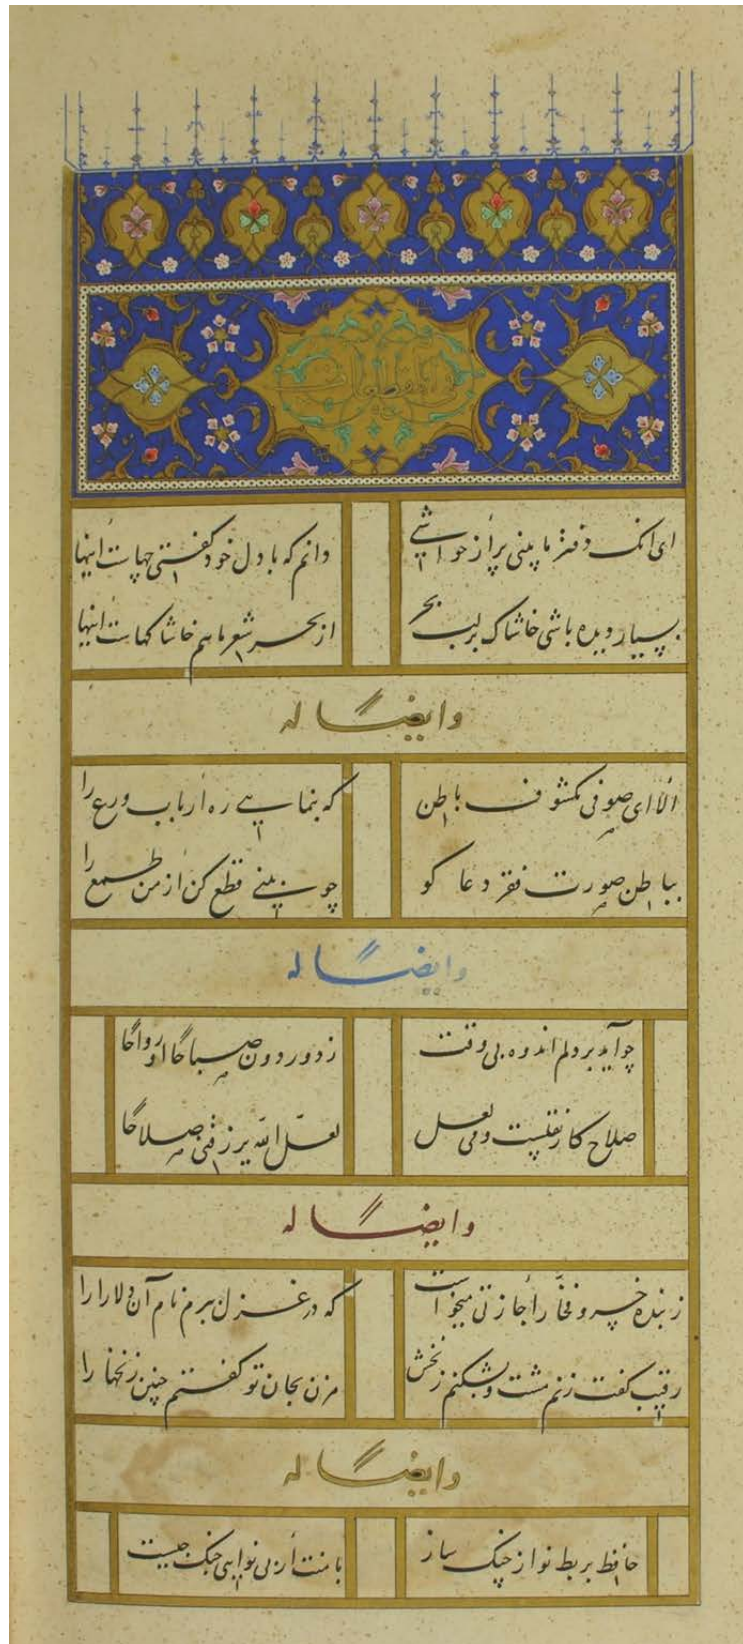 ای انک دفتر ما بینی پر از حواشی دانم که با دل خود گفتی چهاست اینها
بسیار دیده باشی خاشاک بر لب بحر از بحر شعر ما هم خاشاکهاست اینها
وایضا له
الا ای صوفی مکشوف باطن که بنمایی ره ارباب ورع را
بباطن صورت فقر دعا کو چو بینی قطع کن از من طمع را
وایضا له
چو آید بر دلم اندوه بی وقت ز دور دون صباحا او رواحا
صلاح کار نقلیست و می لعل لعل الله یرزقنی صلاحا
وایضا له
ز بنده خسرو فخار اجازتی میخواست که در غزل ببرم نام آن دلارا را
رقیب گفت زنم مشت و بشکنم زنخش مزن بجان تو گفتم چنین زنخها را
وایضا له
حافظ بربط نواز چنک ساز با منت از بی نوایی جنک چیست